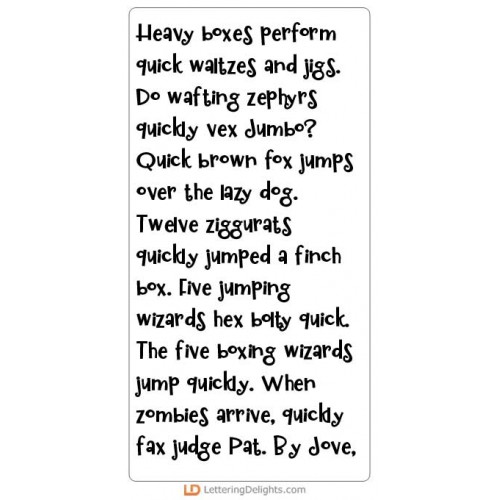 Heavy boxes perform
quick waltzes and jigs.
Do wafting zephyrs
quickly vex Jumbo?
Quick brown fox jumps
over the lazy dog.
Twelve ziggurats
quickly jumped a finch
box. Five jumping
wizards hex bolty quick.
The five boxing wizards
jump quickly. When
zombies arrive, quickly
fax judge Pat. By Jove,
LD LetteringDelights.com